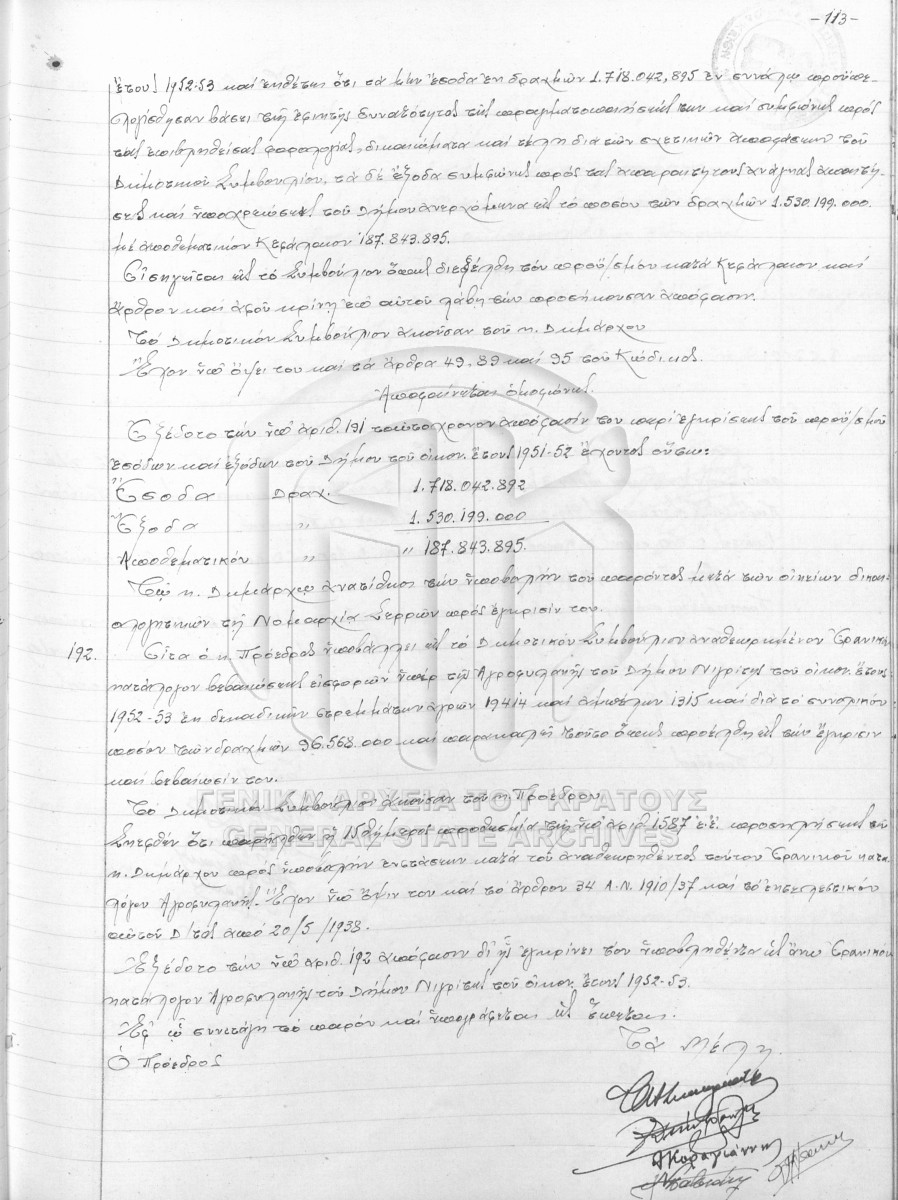 -113-
ἔτους 1952-53 καί ἐκθέτει ὅτι τά μέν ἔσοδα ἐκ δραχμῶν 1.718.042,895 ἐν συνόλῳ προϋπε-
λογίσθησαν βάσει τῆς ἐφικτῆς δυνατότητος τῆς πραγματοποιήσεώς των καί συμφώνως πρός
τάς ἐπιβληθείσας φορολογίας, δικαιώματα καί τέλη διά τῶν σχετικῶν ἀποφάσεων τοῦ
Δημοτικοῦ Συμβουλίου, τά δέ ἔξοδα συμφώνως πρός τάς ἀπαραιτήτους ἀνάγκας ἀπαιτή-
σεις καί ὑποχρεώσεις τοῦ Δήμου ἀνερχόμενα εἰς τό ποσόν τῶν δραχμῶν 1.530.199.000.
μέ ἀποθεματικόν Κεφάλαιον 187.843.895.
Εἰσηγεῖται εἰς τό Συμβούλιον ὅπως διεξέλθῃ τόν προϋ/σμόν κατά Κεφάλαιον καί
ἄρθρον καί ἀφοῦ κρίνῃ ἐπ' αὐτοῦ λάβῃ τήν προσήκουσαν ἀπόφασιν.
Τό Δημοτικόν Συμβούλιον ἀκοῦσαν τοῦ κ. Δημάρχου
Ἔχον ὑπ' ὄψει του καί τά ἄρθρα 49. 89 καί 95 τοῦ Κώδικος.
Ἀποφαίνεται ὁμοφώνως.
Ἐξέδοτο τήν ὑπ' ἀριθ. 191 ταὐτόχρονον ἀπόφασίν του περί ἐγκρίσεως τοῦ προϋ/σμοῦ
ἐσόδων καί ἐξόδων τοῦ Δήμου τοῦ οἰκον. ἔτους 1951-52 ἔχοντος οὕτω:
Ἔσοδα Δραχ. 1.718.042.892
Ἔξοδα " 1.530.199.000
Ἀποθεματικόν " " 187.843.895.
Τῷ κ. Δημάρχῳ ἀνατίθησι τήν ὑποβολήν τοῦ παρόντος μετά τῶν οἰκείων δικαι-
ολογητικῶν τῇ Νομαρχίᾳ Σερρῶν πρός ἔγκρισίν του.
192. Εἶτα ὁ κ. Πρόεδρος ὑποβάλλει εἰς τό Δημοτικόν Συμβούλιον ἀναθεωρημένον Ἐρανικόν
κατάλογον βεβαιώσεως εἰσφορῶν ὑπέρ τῆς Ἀγροφυλακῆς τοῦ Δήμου Νιγρίτης τοῦ οἰκον. ἔτους
1952-53 ἐκ δεκαδικῶν στρεμμάτων ἀγρῶν 19414 καί ἀμπέλων 1315 καί διά τό συνολικόν
ποσόν τῶν δραχμῶν 96.568.000 καί παρακαλεῖ τοῦτο ὅπως προέλθῃ εἰς τήν ἔγκρισιν
καί βεβαίωσίν του.
Τό Δημοτικόν Συμβούλιον ἀκοῦσαν τοῦ κ. Προέδρου
Σκεφθέν ὅτι παρῆλθεν ἡ 15θήμερος προθεσμία τῆς ὑπ' ἀριθ. 1587 ἐ.ἔ. προσκλήσεως τοῦ
κ. Δημάρχου πρός ὑποβολήν ἐνστάσεων κατά τοῦ ἀναθεωρηθέντος τούτου Ἐρανικοῦ κατα-
λόγου Ἀγροφυλακῆς. Ἔχον ὑπ' ὄψιν του καί τό ἄρθρον 34 Α.Ν. 1910/37 καί τό ἐκτελεστικόν
αὐτοῦ Δ/τος ἀπό 20/5/1938.
Ἐξέδοτο τήν ὑπ' ἀριθ. 192 ἀπόφασιν δι' ἧς ἐγκρίνει τον ὑποβληθέντα ὡς ἄνω Ἐρανικόν
κατάλογον Ἀγροφυλακῆς τοῦ Δήμου Νιγρίτης τοῦ οἰκον. ἔτους 1952-53.
Ἐφ' ᾧ συνετάγη τό παρόν καί ὑπογράφεται ὡς ἕπεται.
Ὁ Πρόεδρος Τά Μέλη
Καραγιάννης
ΓΕΝΙΚΑ ΑΡΧΕΙΑ ΤΟΥ ΚΡΑΤΟΥΣ
GENERAL STATE ARCHIVES